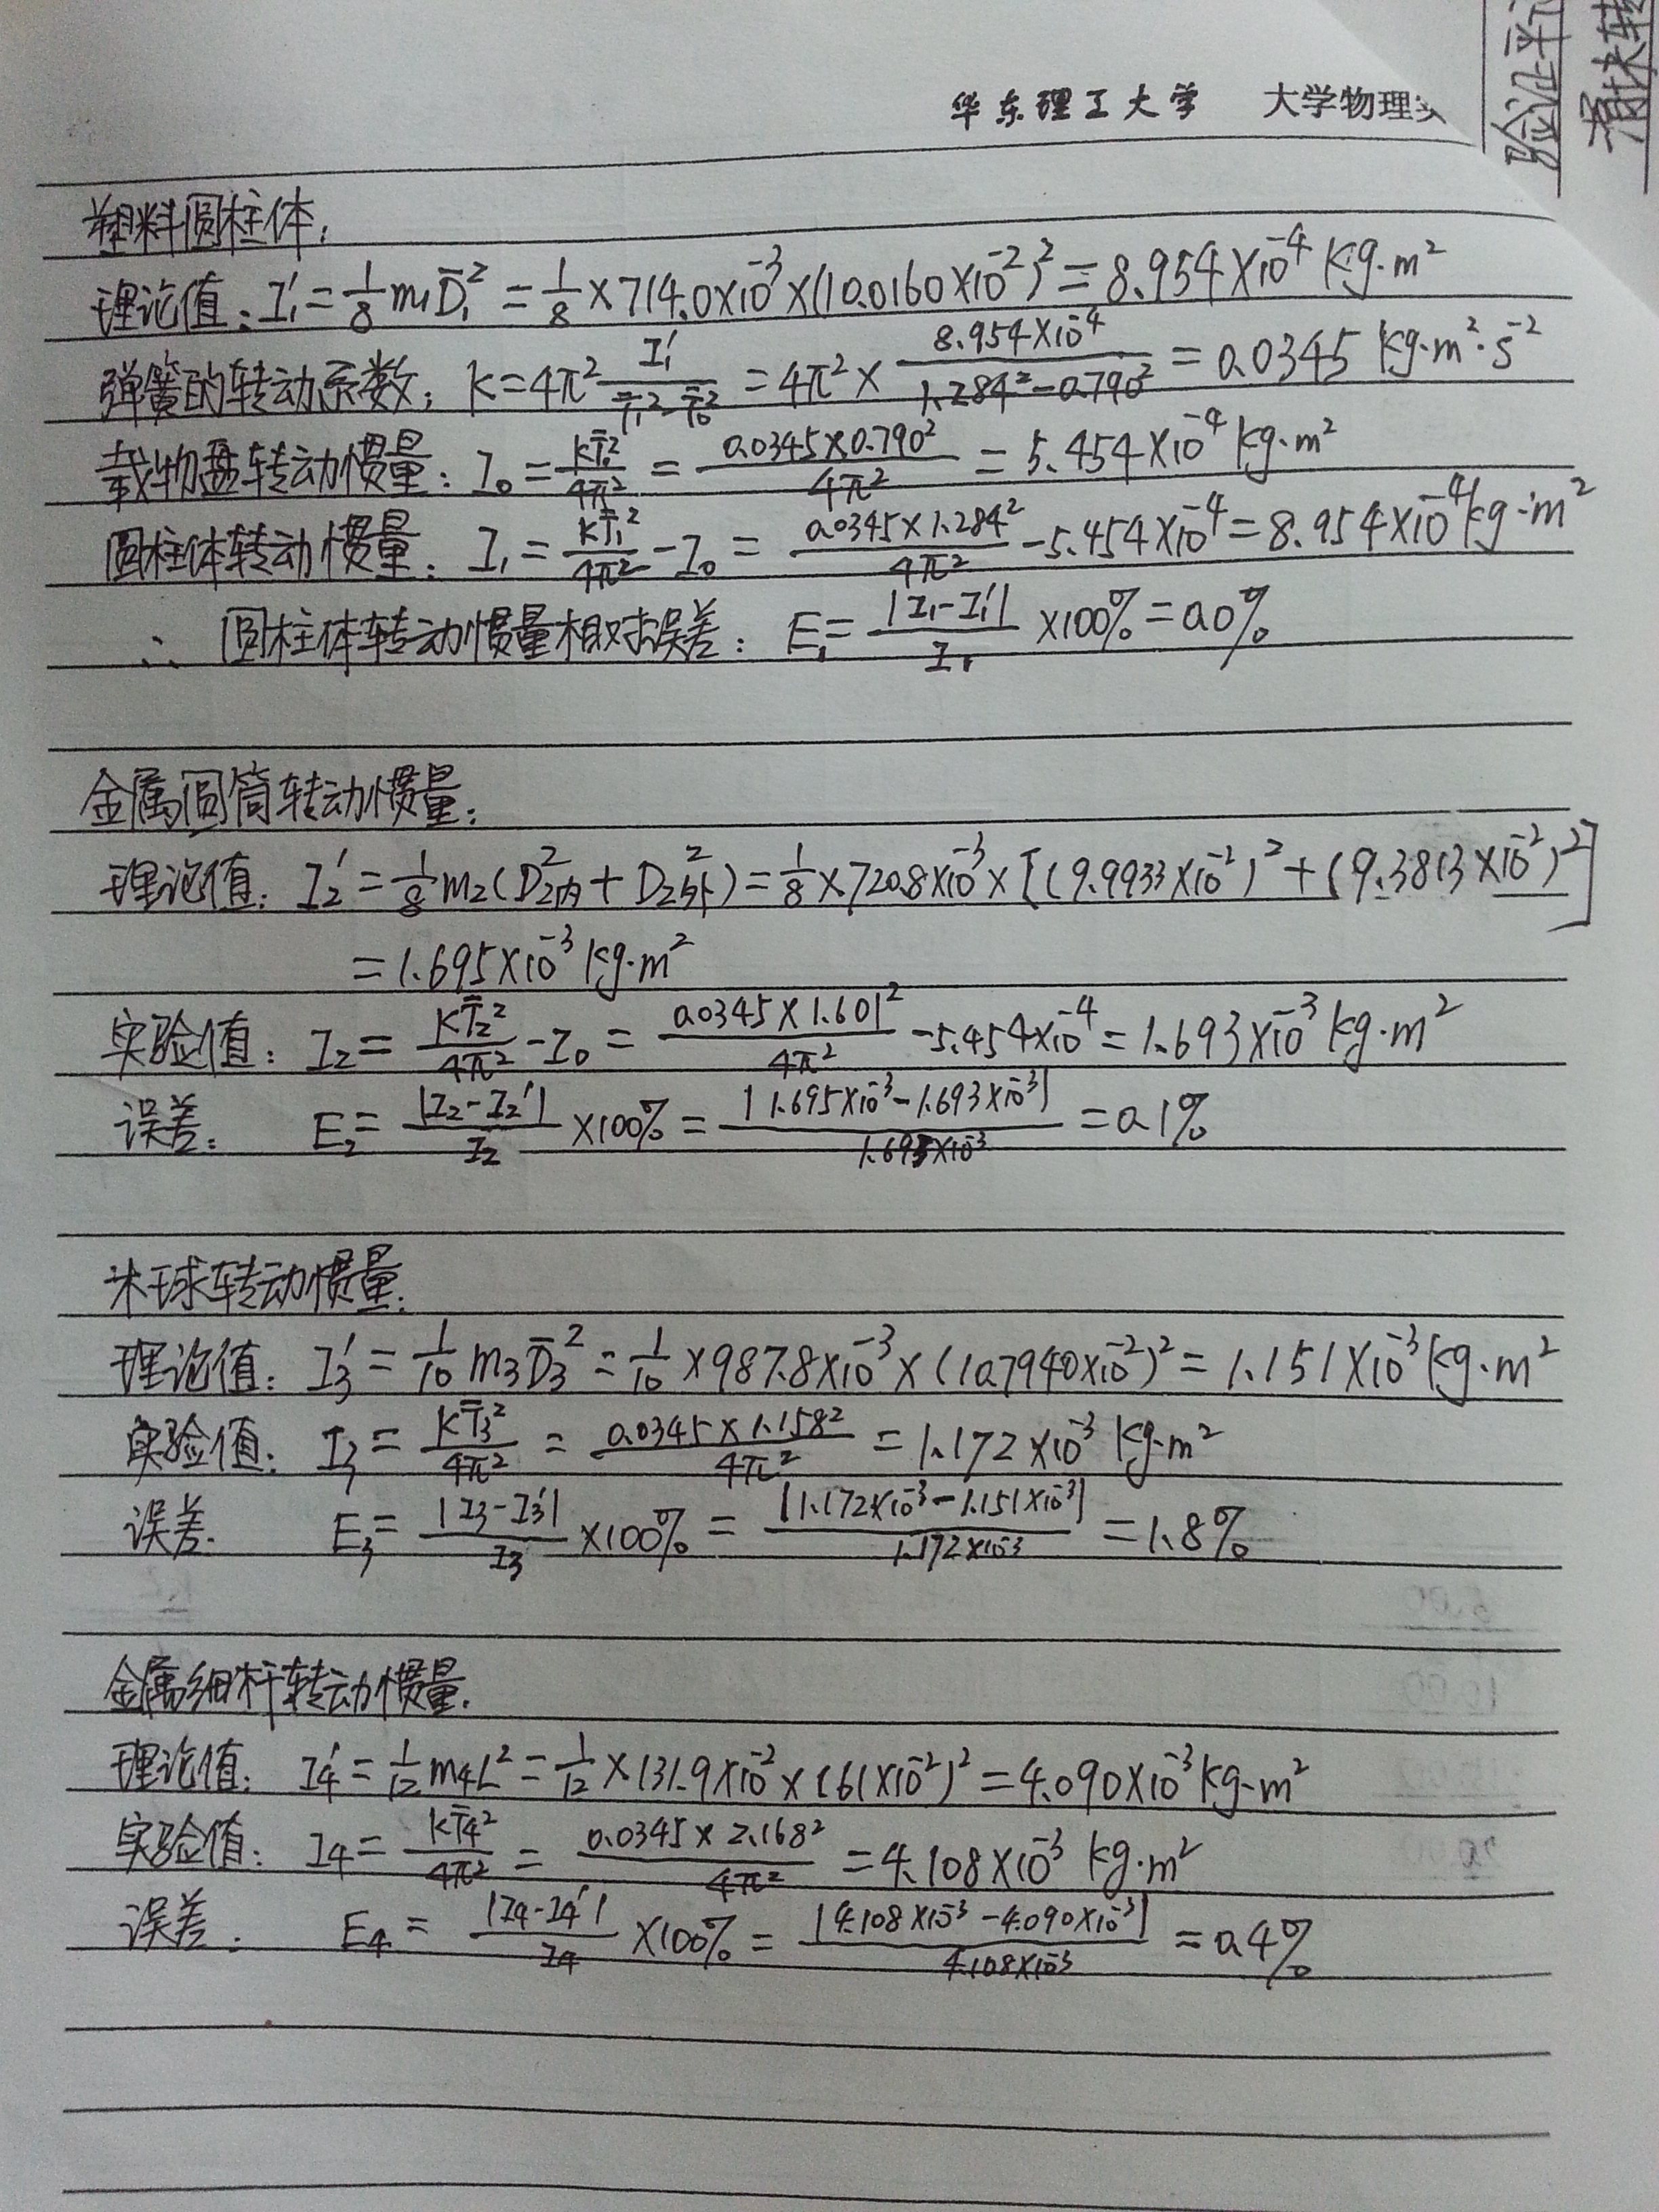 华东理工大学 大学物理实
验证平
滑块转
塑料圆柱体:
理论值: I₁' = 1/8 m₁D̄₁² = 1/8 × 714.0×10⁻³ × (10.0160×10⁻²)² = 8.954×10⁻⁴ kg·m²
弹簧的转动系数: K = 4π² I₁'/(T̄₁²-T̄₀²) = 4π² × 8.954×10⁻⁴/(1.284²-0.790²) = 0.0345 kg·m²·s⁻²
载物盘转动惯量: I₀ = KT̄₀²/4π² = 0.0345×0.790²/4π² = 5.454×10⁻⁴ kg·m²
圆柱体转动惯量: I₁ = KT̄₁²/4π² - I₀ = 0.0345×1.284²/4π² - 5.454×10⁻⁴ = 8.954×10⁻⁴ kg·m²
∴ 圆柱体转动惯量相对误差: E₁ = |I₁-I₁'|/I₁ ×100% = 0.0%
金属圆筒转动惯量:
理论值: I₂' = 1/8 m₂(D₂内² + D₂外²) = 1/8 × 720.8×10⁻³ × [(9.9933×10⁻²)² + (9.3813×10⁻²)²]
= 1.695×10⁻³ kg·m²
实验值: I₂ = KT̄₂²/4π² - I₀ = 0.0345×1.601²/4π² - 5.454×10⁻⁴ = 1.693×10⁻³ kg·m²
误差: E₂ = |I₂-I₂'|/I₂ ×100% = |1.695×10⁻³-1.693×10⁻³|/1.693×10⁻³ = 0.1%
木球转动惯量:
理论值: I₃' = 1/10 m₃D̄₃² = 1/10 × 987.8×10⁻³ × (10.7940×10⁻²)² = 1.151×10⁻³ kg·m²
实验值: I₃ = KT̄₃²/4π² = 0.0345×1.158²/4π² = 1.172×10⁻³ kg·m²
误差. E₃ = |I₃-I₃'|/I₃ ×100% = |1.172×10⁻³-1.151×10⁻³|/1.172×10⁻³ = 1.8%
金属细杆转动惯量.
理论值: I₄' = 1/12 m₄L² = 1/12 × 131.9×10⁻² × (61×10⁻²)² = 4.090×10⁻³ kg·m²
实验值: I₄ = KT̄₄²/4π² = 0.0345×2.168²/4π² = 4.108×10⁻³ kg·m²
误差: E₄ = |I₄-I₄'|/I₄ ×100% = |4.108×10⁻³-4.090×10⁻³|/4.108×10⁻³ = 0.4%